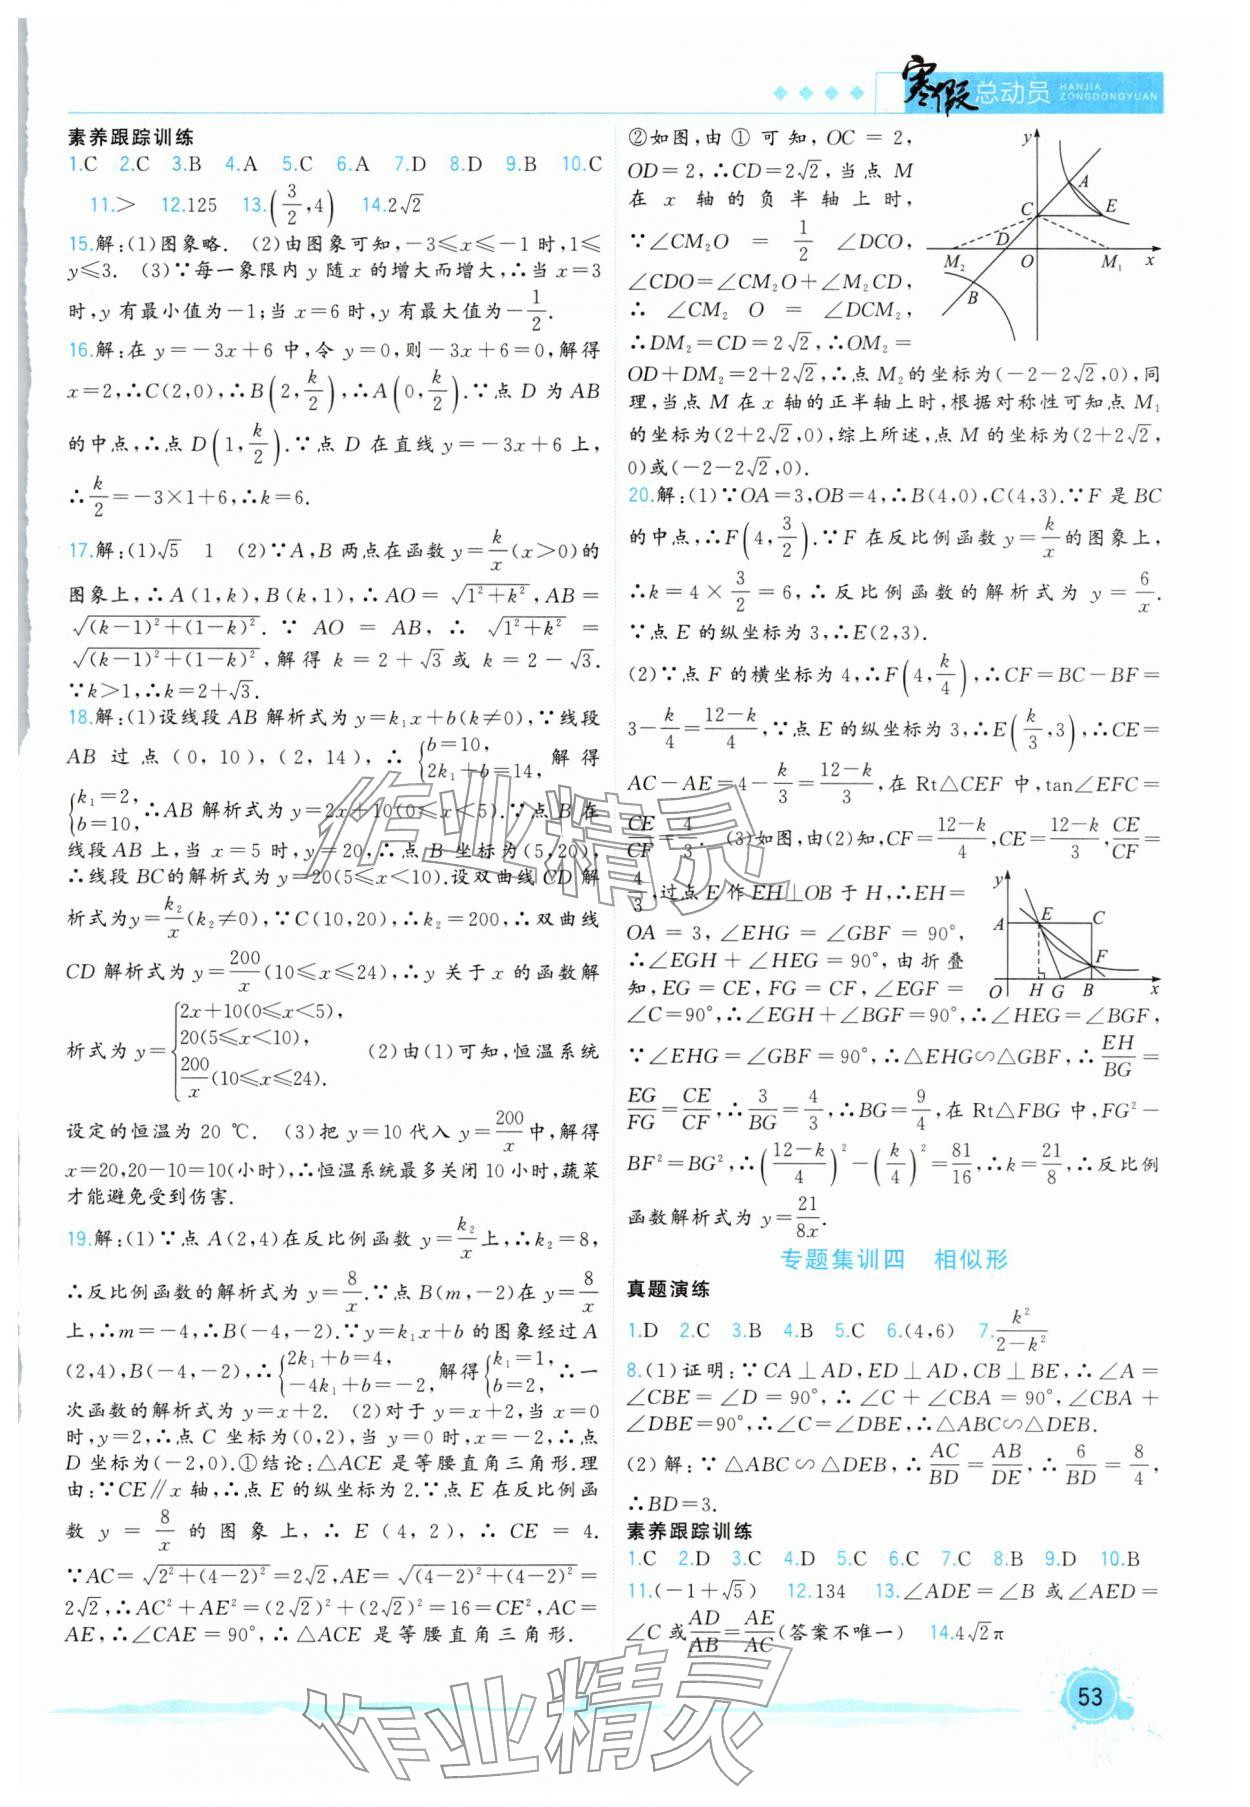 寒假总动员 HANJIA ZONGDONGYUAN
素养跟踪训练
1.C 2.C 3.B 4.A 5.C 6.A 7.D 8.D 9.B 10.C
11.> 12.125 13.(3/2,4) 14.2√2
15.解:(1)图象略. (2)由图象可知,-3≤x≤-1时,1≤
y≤3. (3)∵每一象限内y随x的增大而增大,∴当x=3
时,y有最小值为-1;当x=6时,y有最大值为-1/2.
16.解:在y=-3x+6中,令y=0,则-3x+6=0,解得
x=2,∴C(2,0),∴B(2,k/2),∴A(0,k/2).∵点D为AB
的中点,∴点D(1,k/2).∵点D在直线y=-3x+6上,
∴k/2=-3×1+6,∴k=6.
17.解:(1)√5 1 (2)∵A,B两点在函数y=k/x(x>0)的
图象上,∴A(1,k),B(k,1),∴AO=√(1²+k²),AB=
√((k-1)²+(1-k)²).∵AO=AB,∴√(1²+k²)=
√((k-1)²+(1-k)²),解得k=2+√3或k=2-√3.
∵k>1,∴k=2+√3.
18.解:(1)设线段AB解析式为y=k₁x+b(k≠0),∵线段
AB过点(0,10),(2,14),∴{b=10, 2k₁+b=14, 解得
{k₁=2, b=10, ∴AB解析式为y=2x+10(0≤x<5).∵点B在
线段AB上,当x=5时,y=20,∴点B坐标为(5,20),
∴线段BC的解析式为y=20(5≤x<10).设双曲线CD解
析式为y=k₂/x(k₂≠0),∵C(10,20),∴k₂=200,∴双曲线
CD解析式为y=200/x(10≤x≤24),∴y关于x的函数解
析式为y={2x+10(0≤x<5), 20(5≤x<10), 200/x(10≤x≤24). (2)由(1)可知,恒温系统
设定的恒温为20 ℃. (3)把y=10代入y=200/x中,解得
x=20,20-10=10(小时),∴恒温系统最多关闭10小时,蔬菜
才能避免受到伤害.
19.解:(1)∵点A(2,4)在反比例函数y=k₂/x上,∴k₂=8,
∴反比例函数的解析式为y=8/x.∵点B(m,-2)在y=8/x
上,∴m=-4,∴B(-4,-2).∵y=k₁x+b的图象经过A
(2,4),B(-4,-2),∴{2k₁+b=4, -4k₁+b=-2, 解得{k₁=1, b=2, ∴一
次函数的解析式为y=x+2. (2)对于y=x+2,当x=0
时,y=2,∴点C坐标为(0,2),当y=0时,x=-2,∴点
D坐标为(-2,0).①结论:△ACE是等腰直角三角形.理
由:∵CE∥x轴,∴点E的纵坐标为2.∵点E在反比例函
数y=8/x的图象上,∴E(4,2),∴CE=4.
∵AC=√(2²+(4-2)²)=2√2,AE=√((4-2)²+(4-2)²)=
2√2,∴AC²+AE²=(2√2)²+(2√2)²=16=CE²,AC=
AE,∴∠CAE=90°,∴△ACE是等腰直角三角形.
②如图,由①可知,OC=2,
OD=2,∴CD=2√2,当点M
在x轴的负半轴上时,
∵∠CM₂O=1/2∠DCO,
∠CDO=∠CM₂O+∠M₂CD,
∴∠CM₂O=∠DCM₂,
∴DM₂=CD=2√2,∴OM₂=
y A C E M₂ D O M₁ x B
OD+DM₂=2+2√2,∴点M₂的坐标为(-2-2√2,0),同
理,当点M在x轴的正半轴上时,根据对称性可知点M₁
的坐标为(2+2√2,0),综上所述,点M的坐标为(2+2√2,
0)或(-2-2√2,0).
20.解:(1)∵OA=3,OB=4,∴B(4,0),C(4,3).∵F是BC
的中点,∴F(4,3/2).∵F在反比例函数y=k/x的图象上,
∴k=4×3/2=6,∴反比例函数的解析式为y=6/x.
∵点E的纵坐标为3,∴E(2,3).
(2)∵点F的横坐标为4,∴F(4,k/4),∴CF=BC-BF=
3-k/4=(12-k)/4,∵点E的纵坐标为3,∴E(k/3,3),∴CE=
AC-AE=4-k/3=(12-k)/3,在Rt△CEF中,tan∠EFC=
CE/CF=4/3. (3)如图,由(2)知,CF=(12-k)/4,CE=(12-k)/3,CE/CF=
4/3,过点E作EH⊥OB于H,∴EH=
OA=3,∠EHG=∠GBF=90°,
∴∠EGH+∠HEG=90°,由折叠
知,EG=CE,FG=CF,∠EGF=
y A E C F O H G B x
∠C=90°,∴∠EGH+∠BGF=90°,∴∠HEG=∠BGF,
∵∠EHG=∠GBF=90°,∴△EHG∽△GBF,∴EH/BG=
EG/FG=CE/CF,∴3/BG=4/3,∴BG=9/4,在Rt△FBG中,FG²-
BF²=BG²,∴((12-k)/4)²-(k/4)²=81/16,∴k=21/8,∴反比例
函数解析式为y=21/8x.
专题集训四 相似形
真题演练
1.D 2.C 3.B 4.B 5.C 6.(4,6) 7.k²/(2-k²)
8.(1)证明:∵CA⊥AD,ED⊥AD,CB⊥BE,∴∠A=
∠CBE=∠D=90°,∴∠C+∠CBA=90°,∠CBA+
∠DBE=90°,∴∠C=∠DBE,∴△ABC∽△DEB.
(2)解:∵△ABC∽△DEB,∴AC/BD=AB/DE,∴6/BD=8/4,
∴BD=3.
素养跟踪训练
1.C 2.D 3.C 4.D 5.C 6.C 7.C 8.B 9.D 10.B
11.(-1+√5) 12.134 13.∠ADE=∠B或∠AED=
∠C或AD/AB=AE/AC(答案不唯一) 14.4√2π
53
作业精灵
作业精灵